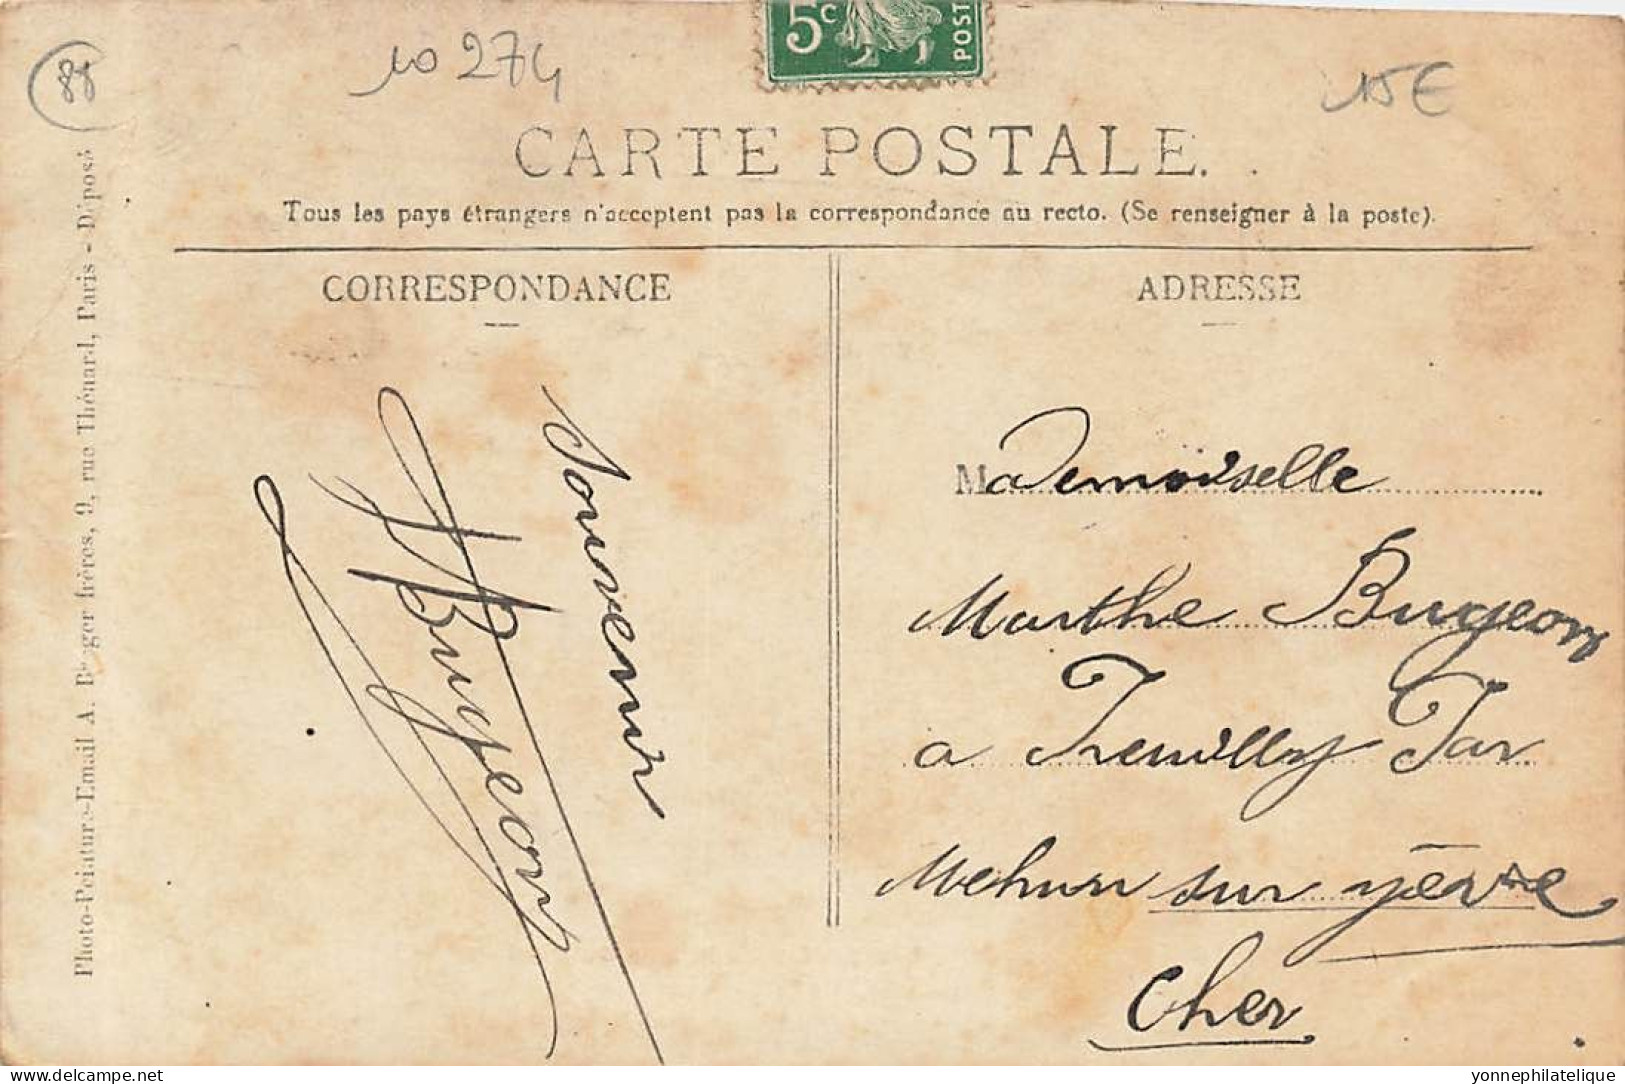 88
10 274
5c
POST
15€
CARTE POSTALE.
Tous les pays étrangers n'acceptent pas la correspondance au recto. (Se renseigner à la poste).
CORRESPONDANCE
ADRESSE
Photo-Peinture-Email A. Berger frères, 9, rue Thénard, Paris - Déposé
Souvenir
Bugeon
Mademoiselle
Marthe Bugeon
a Treuilly Par
Mehun sur yèvre
Cher
yonnephilatelique